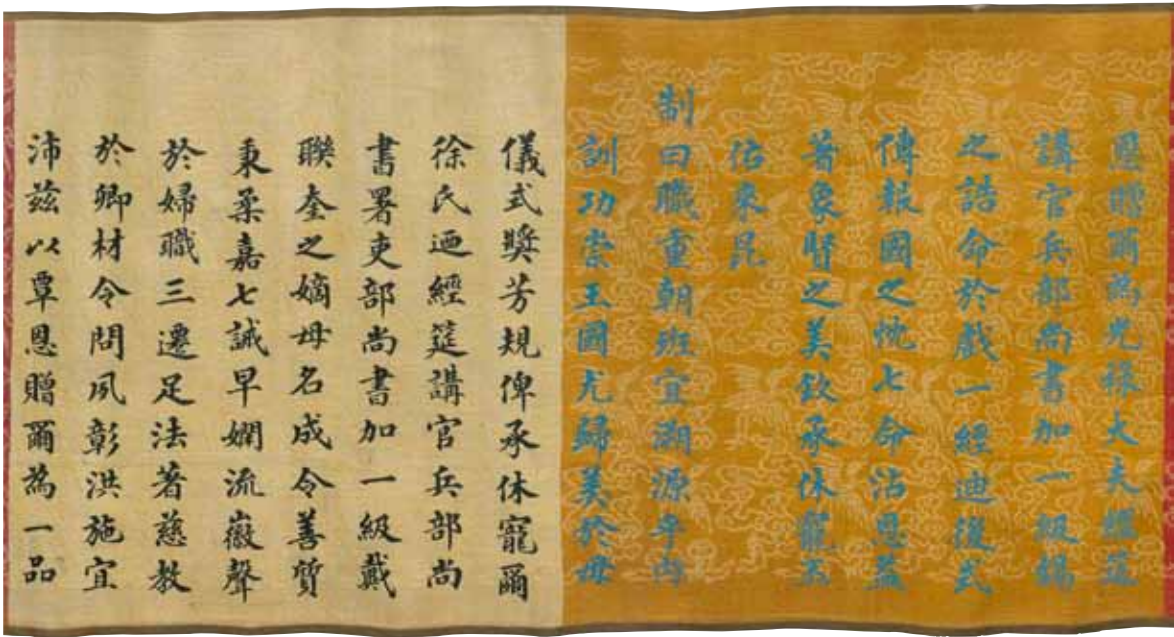 恩贈爾為光祿大夫經筵
講官兵部尚書加一級錫
之誥命於戲一經迪後式
傳報國之忱七命沾恩益
著象賢之美欽承休寵丕
佑來昆
制曰職重朝班宜溯源於內
訓功崇王國尤歸美於母
儀式獎芳規俾承休寵爾
徐氏迺經筵講官兵部尚
書署吏部尚書加一級戴
聯奎之嫡母名成令善質
秉柔嘉七誡早嫻流徽聲
於婦職三遷足法著慈教
於卿材令問夙彰洪施宜
沛茲以覃恩贈爾為一品